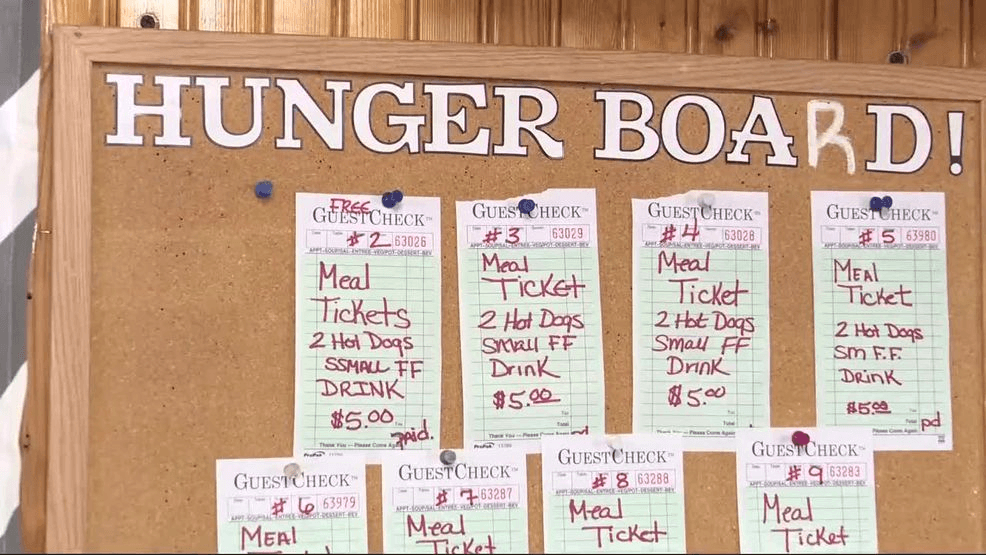 HUNGER BOARD!
FREE
GUESTCHECK™
#2 63026
APPT-SOUP/SAL-ENTREE-VEG/POT-DESSERT-BEV
Meal
Tickets
2 Hot Dogs
SSMALL FF
DRINK
$5.00
Tax
Total
paid.
Thank You — Please Come Again
GUESTCHECK™
#3 63029
APPT-SOUP/SAL-ENTREE-VEG/POT-DESSERT-BEV
Meal
Ticket
2 Hot Dogs
Small FF
Drink
$5.00
Tax
Total
Thank You — Please Come Again
GUESTCHECK™
#4 63028
APPT-SOUP/SAL-ENTREE-VEG/POT-DESSERT-BEV
Meal
Ticket
2 Hot Dogs
Small FF
Drink
$5.00
Tax
Total
Thank You — Please Come Again
GUESTCHECK™
#5 63980
APPT-SOUP/SAL-ENTREE-VEG/POT-DESSERT-BEV
Meal
Ticket
2 Hot Dogs
Sm F.F.
Drink
$5.00
Tax
Total
pd
Thank You — Please Come Again
GUESTCHECK™
#6 63979
APPT-SOUP/SAL-ENTREE-VEG/POT-DESSERT-BEV
Meal
GUESTCHECK™
#7 63287
APPT-SOUP/SAL-ENTREE-VEG/POT-DESSERT-BEV
Meal
Ticket
GUESTCHECK™
#8 63288
APPT-SOUP/SAL-ENTREE-VEG/POT-DESSERT-BEV
Meal
Ticket
GUESTCHECK™
#9 63283
APPT-SOUP/SAL-ENTREE-VEG/POT-DESSERT-BEV
Meal
Ticket